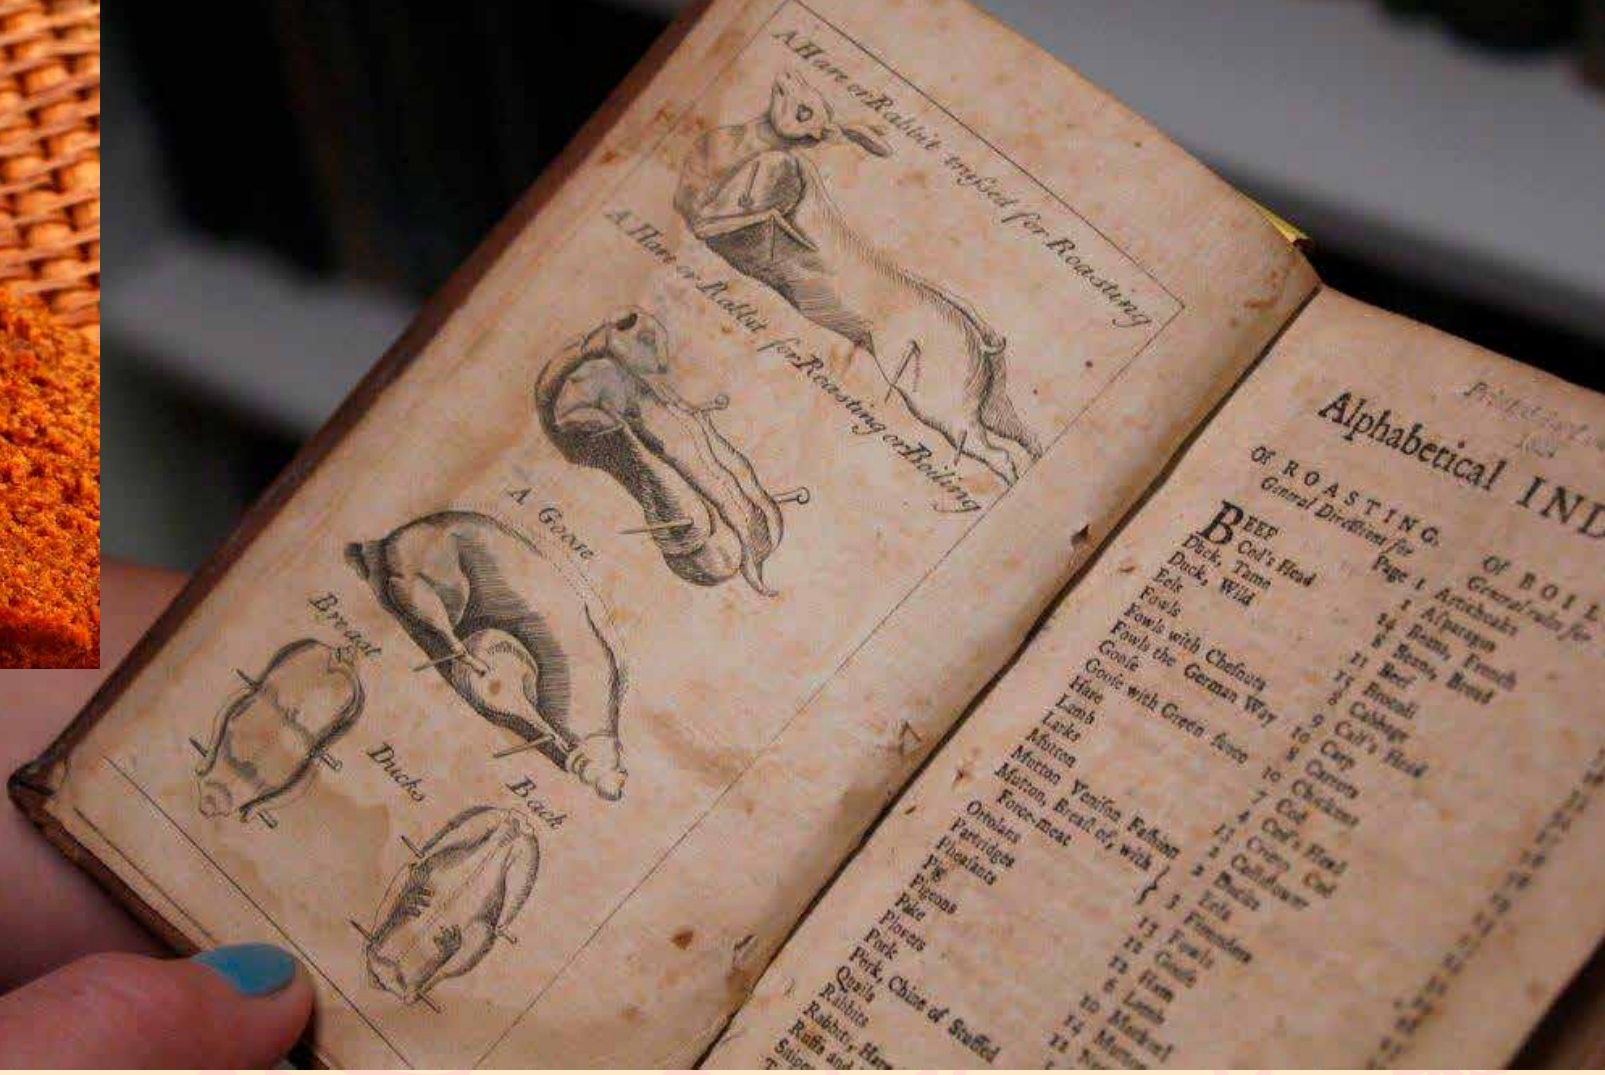 A Hare or Rabbit trussed for Roasting
A Hare or Rabbit for Roasting or Boiling
A Goose
Breast
Ducks
Back
Alphabetical IND
Of ROASTING.
General Directions for
Page 1
BEEF 1
Cod's Head 14
Duck, Tame 8
Duck, Wild 11
Eels 15
Fowls 6
Fowls with Chesnuts 9
Fowls the German Way 10
Goose 8
Goose with Green sauce 10
Hare 7
Lamb 4
Larks 13
Mutton 2
Mutton Venison Fashion 2
Mutton, Breast of, with
Force-meat } 3
Ortolans 13
Partridges 12
Pheasants 12
Pig 6
Pigeons 10
Pike 14
Plovers 12
Pork
Pork, Chine of Stuffed
Quails
Rabbits
Rabbit, Hare
Ruffs and
Snipes
Of BOIL
General rules for
Artichoaks
Asparagus
Beans, French
Beans, Broad
Beef
Brocoli
Cabbage
Calf's Head
Carp
Carrots
Chickens
Cod
Cod's Head
Crimp Cod
Colliflower
Ducks
Eels
Flounders
Fowls
Goose
Ham
Lamb
Mackrel
Mutton